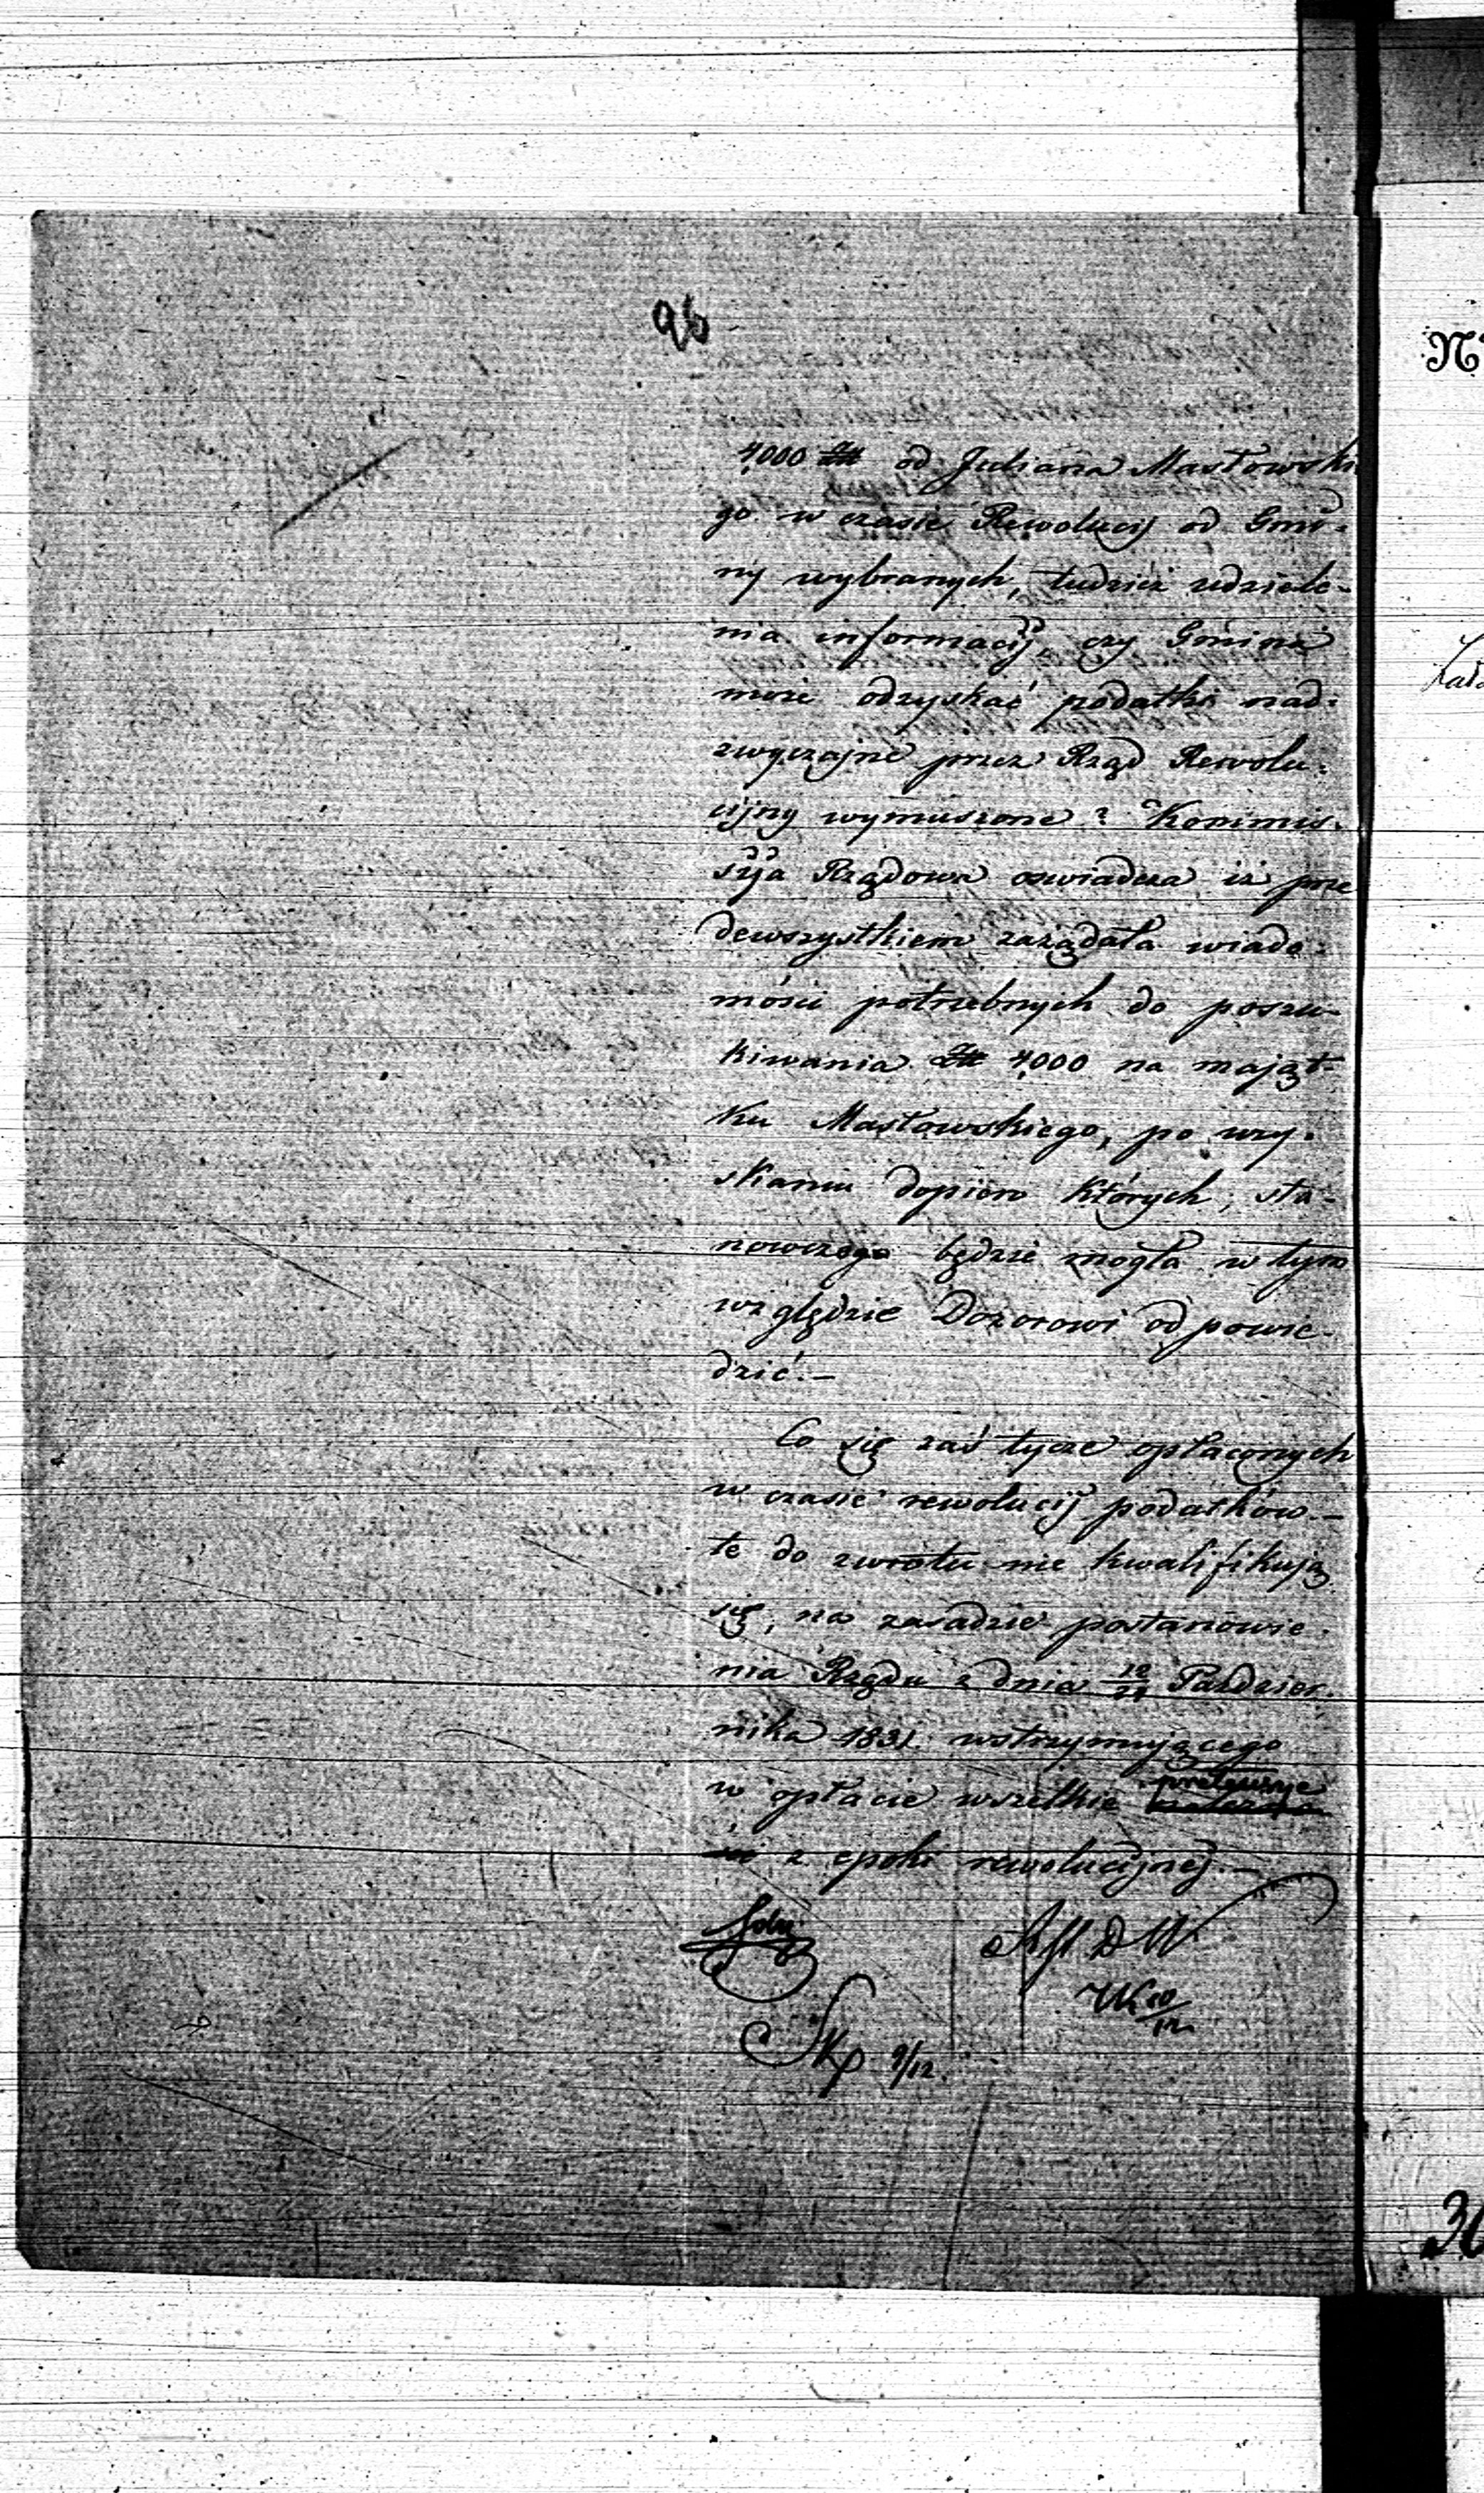 96
4000 Zł od Juliana Masłowski
go w czasie Rewolucij od Gmi-
ny wybranych, tudzież udziele-
nia informacij, czy Gmina
może odzyskać podatki nad-
zwyczajne przez Rząd Rewolu-
cijny wymuszone? Kommis-
syja Rządowa oswiadcza iż prze
dewszystkiem zażądała wiado-
mości potrzebnych do poszu-
kiwania Zł 4000 na mająt-
ku Masłowskiego, po uzy-
skaniu dopiero których, sta-
nowczego będzie mogła w tym
względzie Dozorowi odpowie-
dzić.—
Co się zaś tycze opłaconych
w czasie rewolucij podatków.—
te do zwrotu nie kwalifikują
się, na zasadzie postanowie-
nia Rządu z dnia Paździer-
nika 1831 wstrzymującego
w opłacie wszelkie pretensye
z epoki rewolucijnej.—
9/12.
N
30